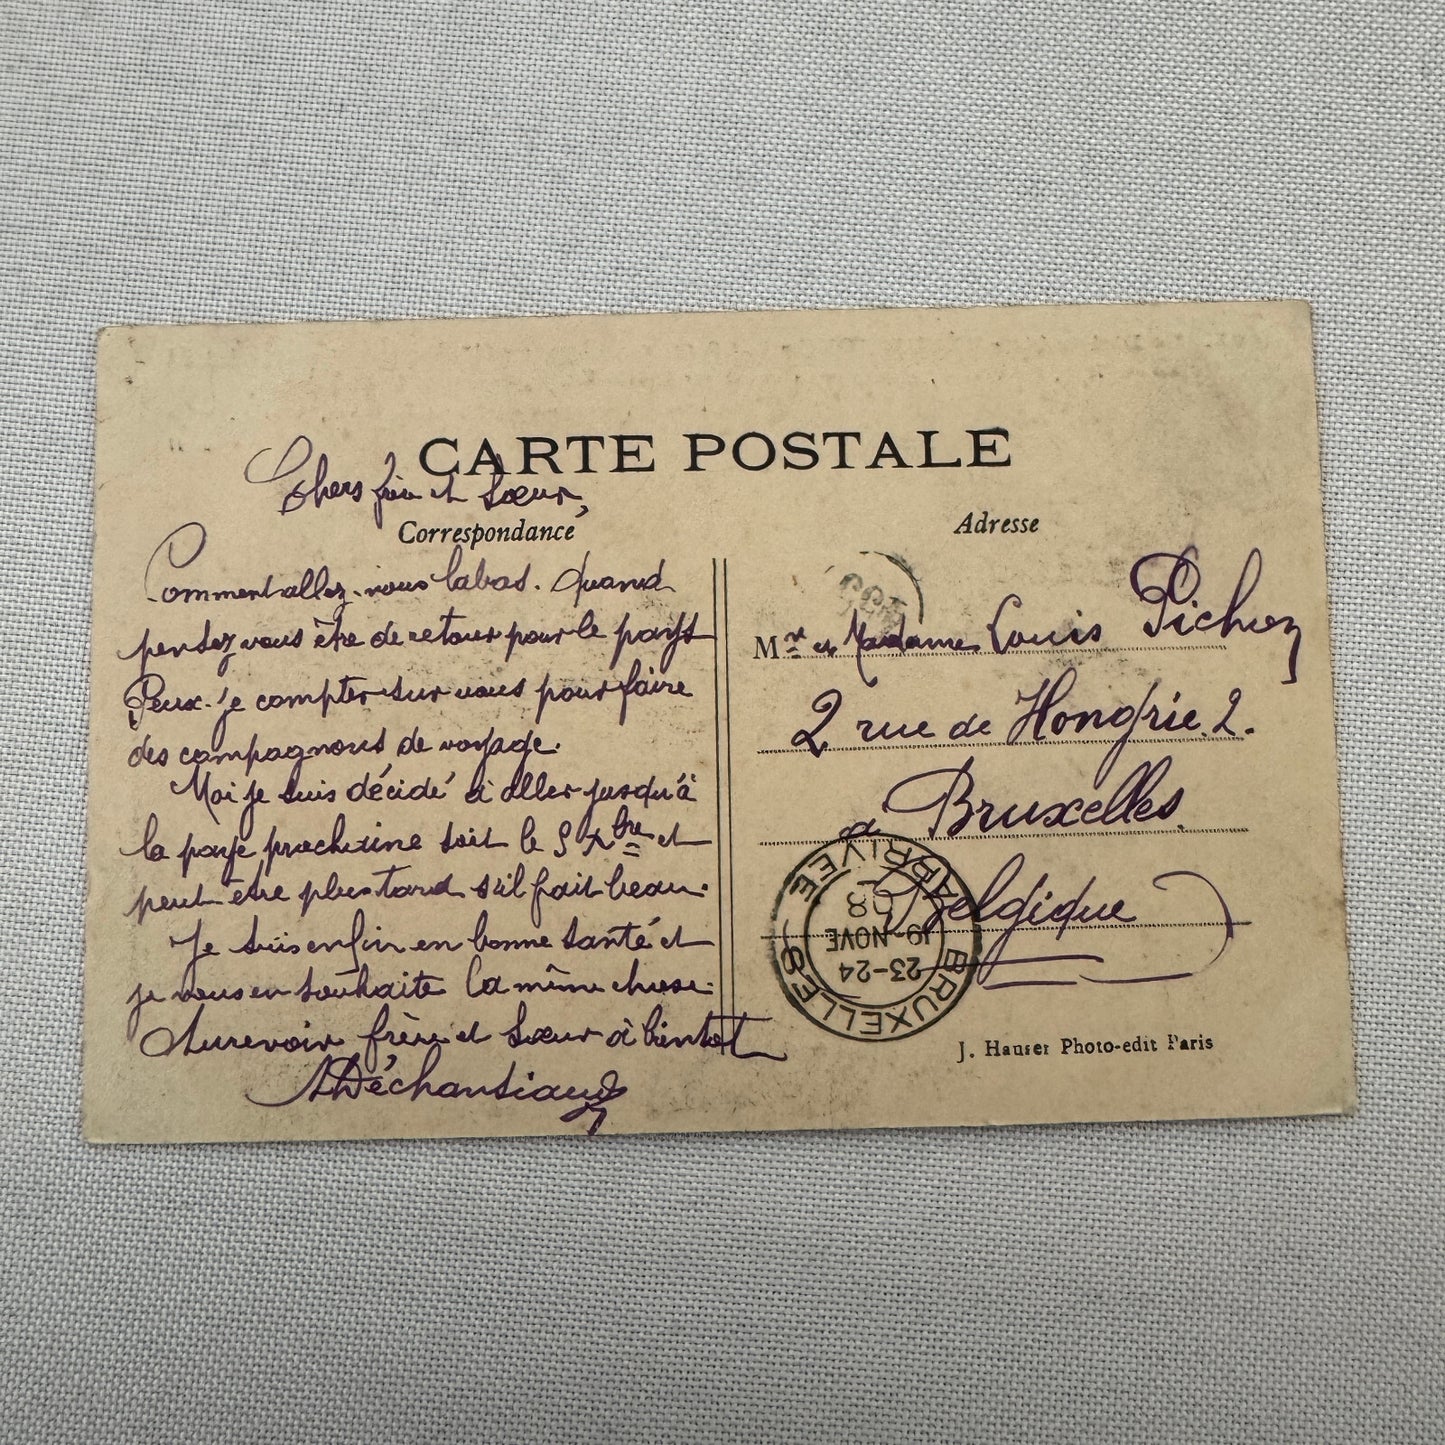 CARTE POSTALE
Chers frère et Sœur,
Correspondance
Comment allez-vous labas. Quand
pensez vous être de retour pour le pays
Peux-je compter sur vous pour faire
des compagnons de voyage.
Moi je suis décidé à aller jusqu'à
la paye prochaine soit le 5 Xbre et
peut être plus tard s'il fait beau.
Je suis enfin en bonne santé et
je vous en souhaite la même chose.
Aurevoir frère et Sœur à bientot
Adresse
Mr et Madame Louis Pichon
2 rue de Hongrie. 2.
à Bruxelles.
Belgique
BRUXELLES ARRIVEE
23-24
19 NOVE
08
J. Hauser Photo-edit Paris